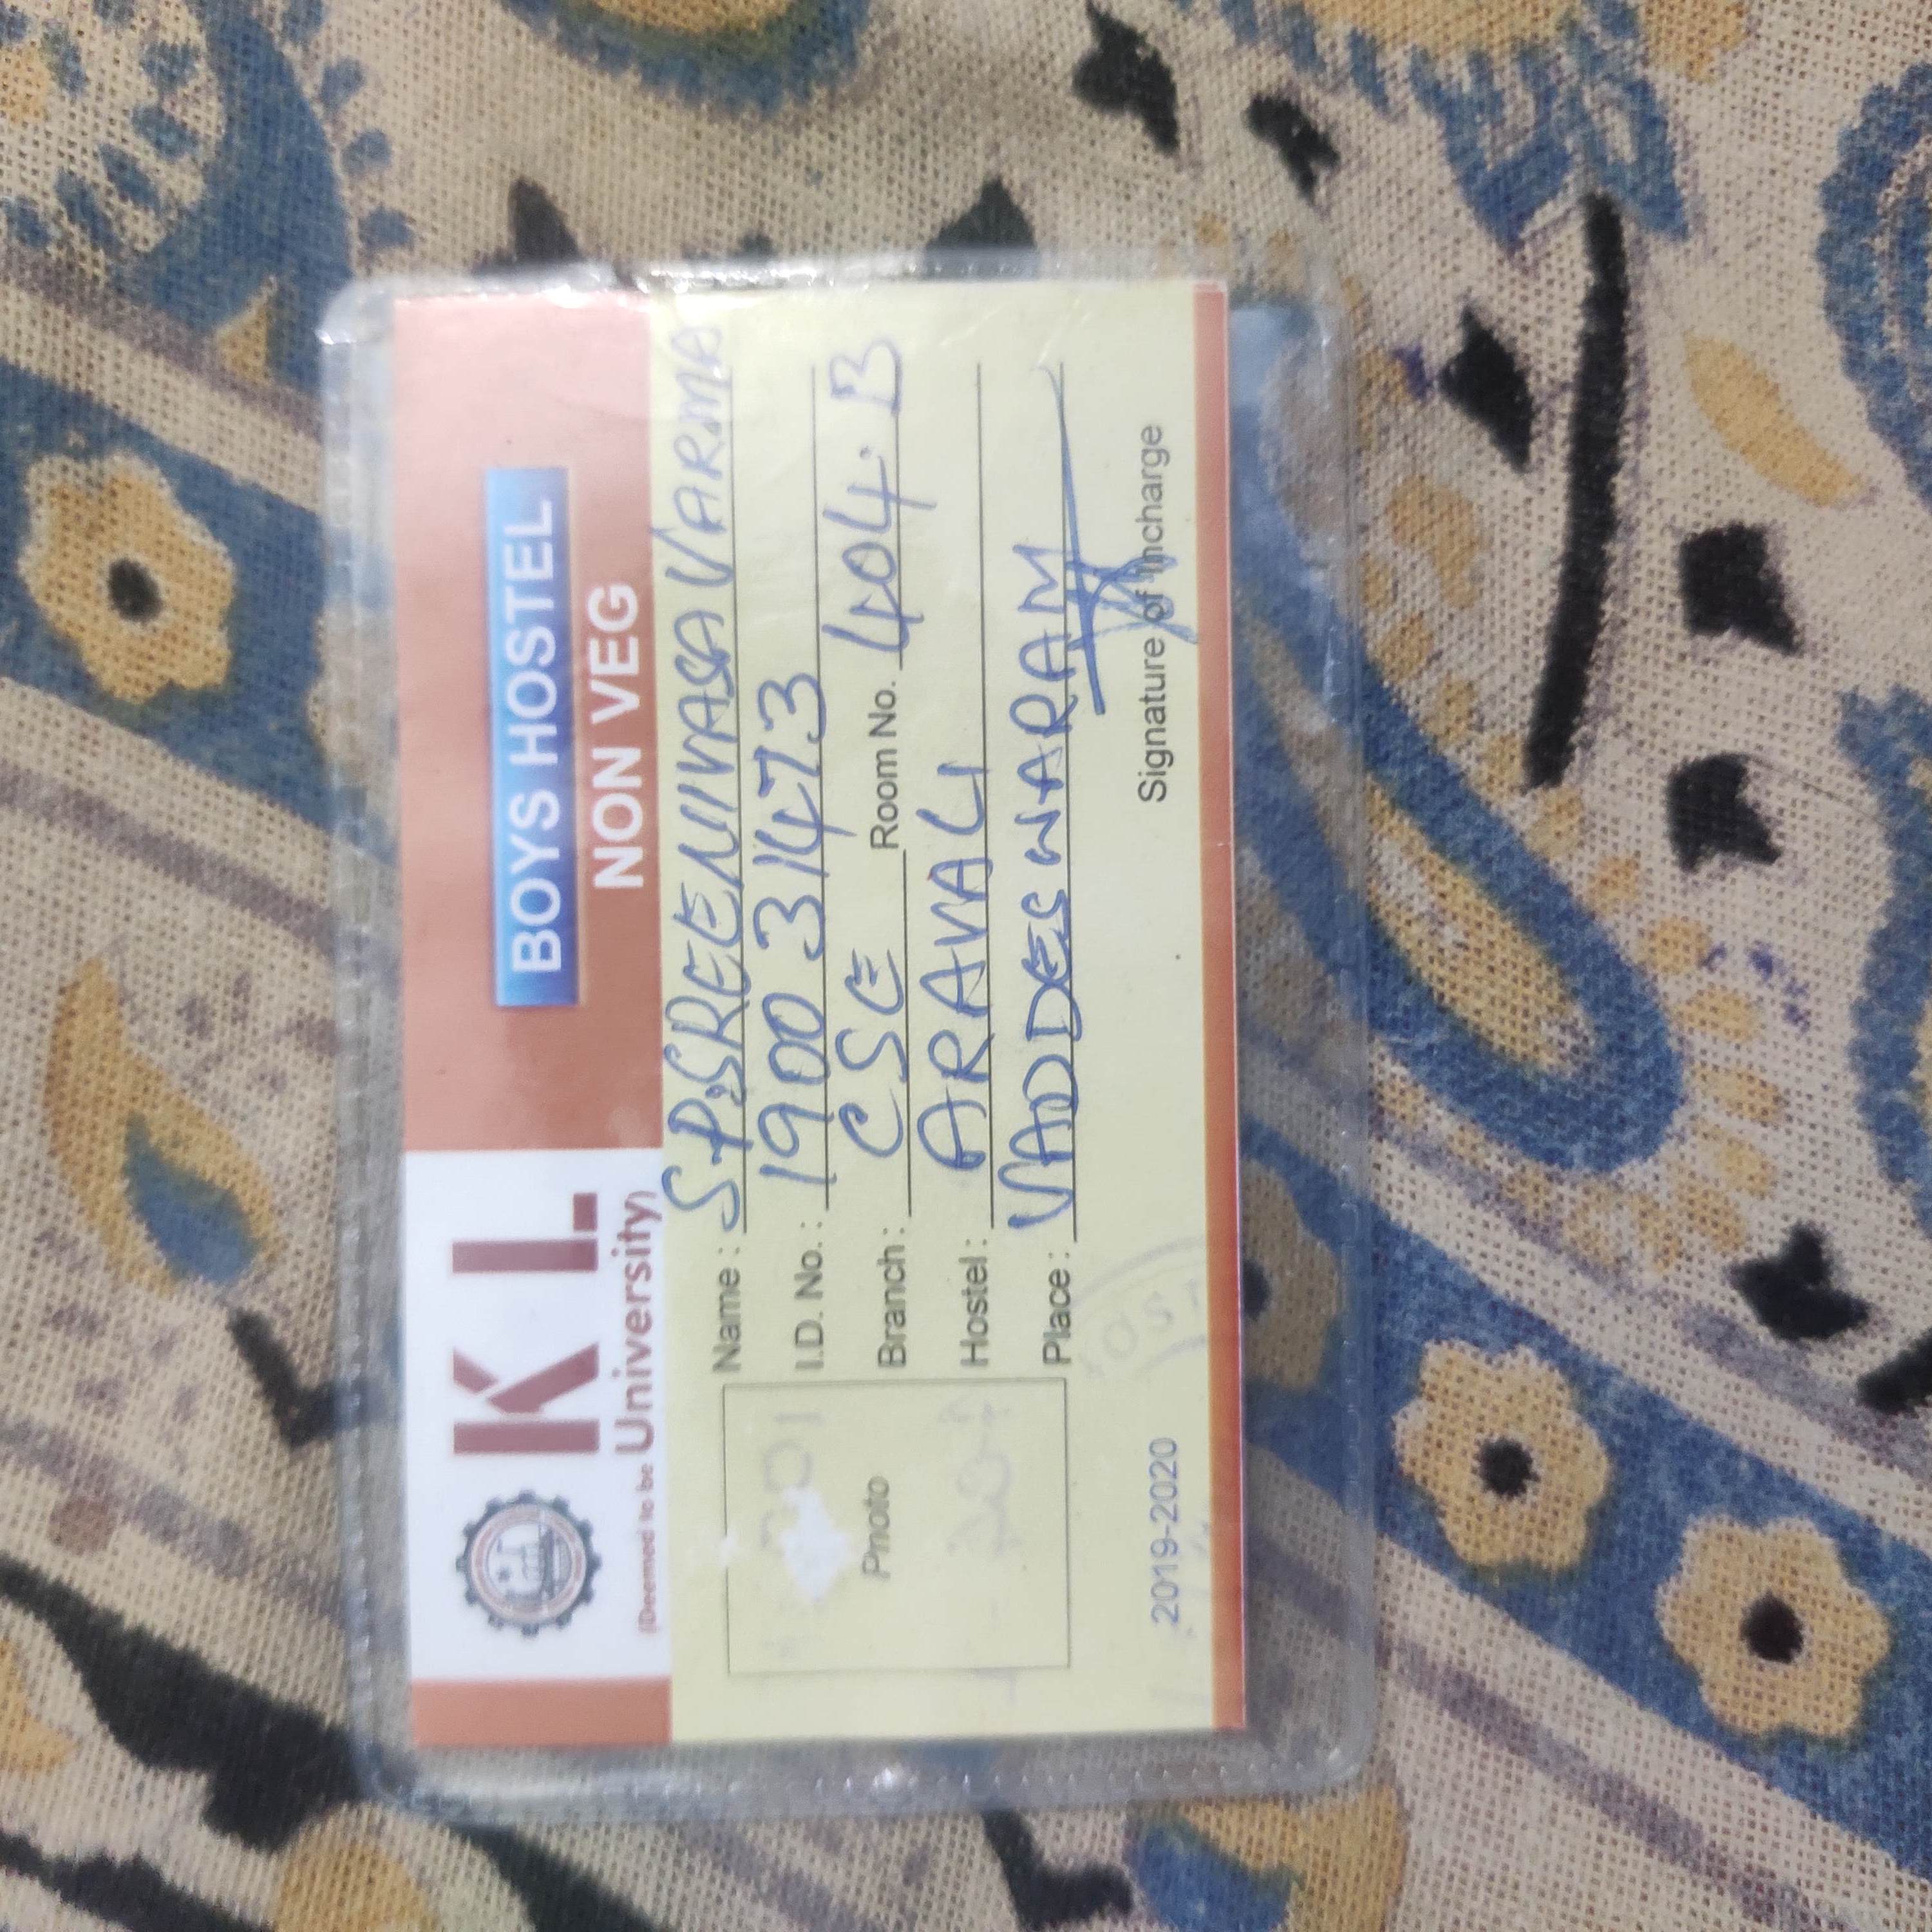 KL
(Deemed to be University)
BOYS HOSTEL
NON VEG
Photo
Name : S.P.SREENIVASA VARMA
I.D. No. : 190031473
Branch : CSE Room No. 404.B
Hostel : ARAVALI
Place : VADDESWARAM
2019-2020
Signature of Incharge